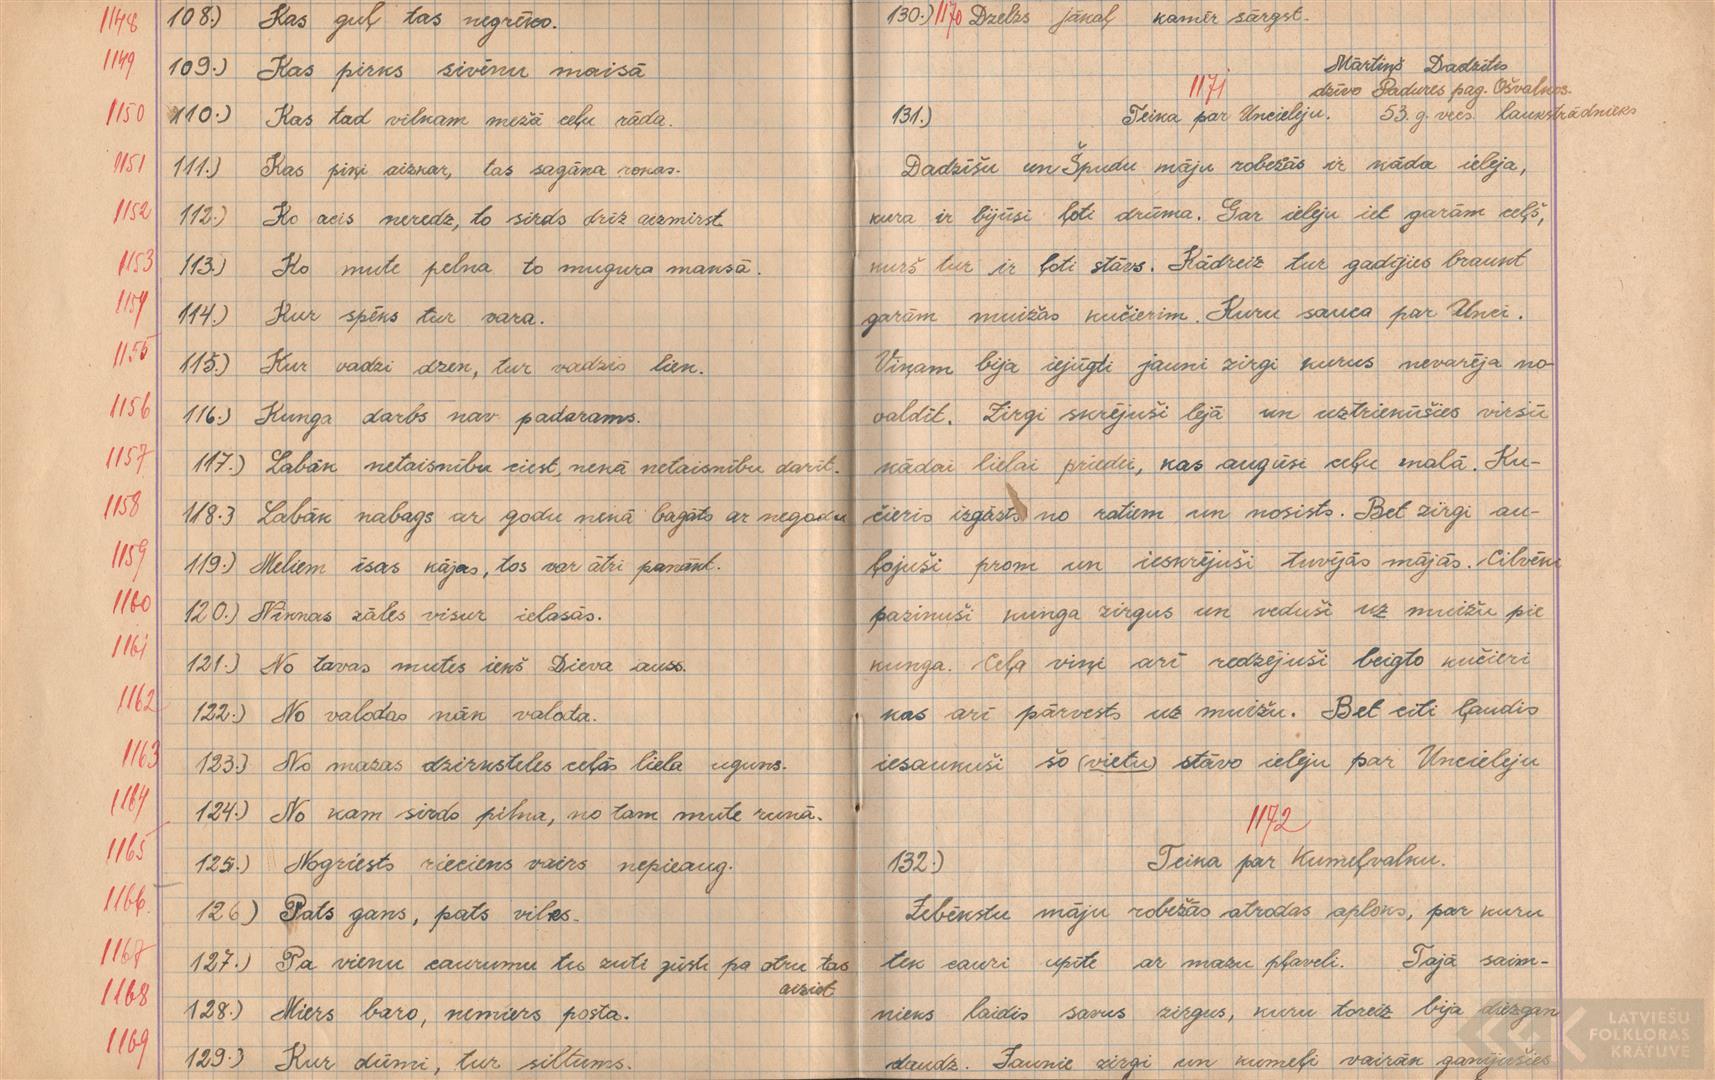 1148 108.) Kas guļ tas negrēko.
1149 109.) Kas pirks sivēnu maisā
1150 110.) Kas tad vilkam mežā ceļu rāda.
1151 111.) Kas piķi aizkar, tas sagāna rokas.
1152 112.) Ko acis neredz, to sirds drīz aizmirst
1153 113.) Ko mute pelna to mugura maksā.
1154 114.) Kur spēks tur vara.
1155 115.) Kur vadzi dzen, tur vadzis lien.
1156 116.) Kunga darbs nav padarams.
1157 117.) Labāk netaisnību ciest, nekā netaisnību darīt.
1158 118.) Labāk nabags ar godu nekā bagāts ar negodu
1159 119.) Meliem īsas kājas, tos var ātri panākt.
1160 120.) Niknas zāles visur ielasās.
1161 121.) No tavas mutes iekš Dieva auss.
1162 122.) No valodas nāk valoda.
1163 123.) No mazas dzirksteles ceļās liela uguns.
1164 124.) No kam sirds pilna, no tam mute runā.
1165 125.) Nogriezts rieciens vairs nepieaug.
1166. 126) Pats gans, pats vilks.
1167 127.) Pa vienu caurumu tu zuti gūsti pa otru tas
aiziet
1168 128.) Miers baro, nemiers posta.
1169 129.) Kur dūmi, tur siltums.
130.) 1170 Dzelzs jākaļ kamēr sārgst.
Mārtiņš Dadzītis
1171 dzīvo Padures pag. Ošvalkos.
131.) Teika par Uncieleju. 53. g. vecs laukstrādnieks
Dadzīšu un Špudu māju robežās ir kāda ieleja,
kura ir bijūsi ļoti drūma. Gar ieleju iet garām ceļš,
kurš tur ir ļoti stāvs. Kādreiz tur gadījies braukt
garām muižas kučierim. Kuru sauca par Unci.
Viņam bija iejūgti jauni zirgi kurus nevarēja no-
valdīt. Zirgi skrējuši lejā un uztriekūšies virsū
kādai lielai priedei, kas augūsi ceļu malā. Ku-
čieris izgāzts no ratiem un nosists. Bet zirgi au-
ļojuši prom un ieskrējuši tuvējās mājās. Cilvēki
pazinuši kunga zirgus un veduši uz muižu pie
kunga. Ceļa viņi arī redzējuši beigto kučieri
kas arī pārvests uz muižu. Bet citi ļaudis
iesaukuši šo (vietu) stāvo ieleju par Uncieleju
1172
132.) Teika par Kumeļvalku.
Zebēkstu māju robežās atrodas aploks, par kuru
tek cauri upīte ar mazu pļaveli. Tajā saim-
nieks laidis savus zirgus, kuru toreiz bija diezgan
daudz. Jaunie zirgi un kumeļi vairāk ganījušies
LATVIEŠU
FOLKLORAS
KRĀTUVE